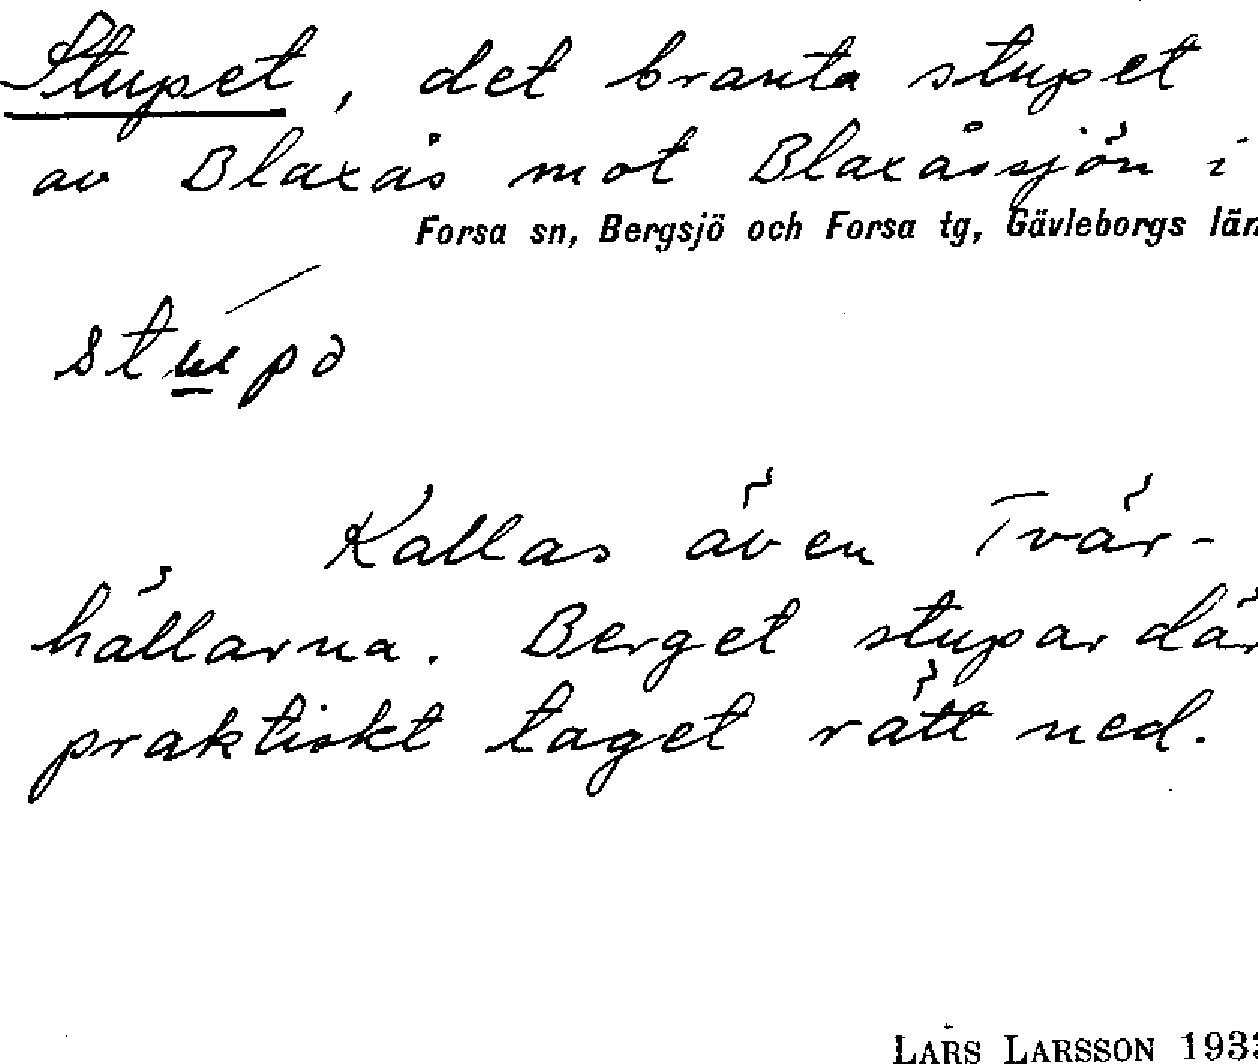 Stupet, det branta stupet
av Blaxås mot Blaxåssjön i
Forsa sn, Bergsjö och Forsa tg, Gävleborgs län
Kallas även Tvär-
hällarna. Berget stupar där
praktiskt taget rätt ned.
LARS LARSSON